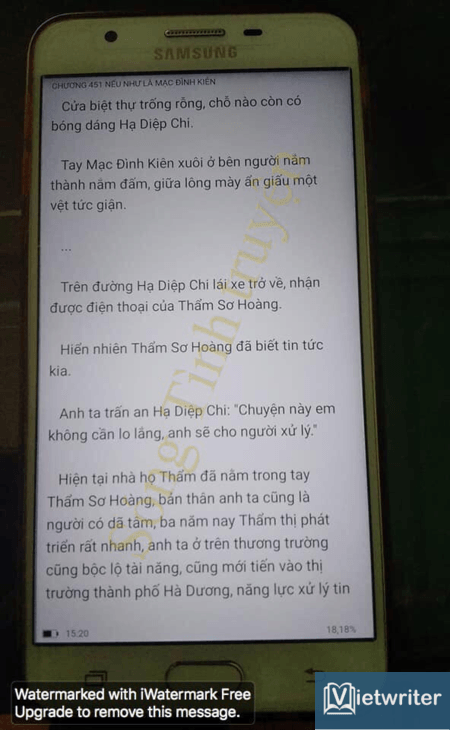 SAMSUNG
CHƯƠNG 451 NẾU NHƯ LÀ MẠC ĐÌNH KIÊN
Cửa biệt thự trống rỗng, chỗ nào còn có
bóng dáng Hạ Diệp Chi.
Tay Mạc Đình Kiên xuôi ở bên người nắm
thành nắm đấm, giữa lông mày ẩn giấu một
vệt tức giận.
...
Trên đường Hạ Diệp Chi lái xe trở về, nhận
được điện thoại của Thẩm Sơ Hoàng.
Hiển nhiên Thẩm Sơ Hoàng đã biết tin tức
kia.
Anh ta trấn an Hạ Diệp Chi: "Chuyện này em
không cần lo lắng, anh sẽ cho người xử lý."
Hiện tại nhà họ Thẩm đã nằm trong tay
Thẩm Sơ Hoàng, bản thân anh ta cũng là
người có dã tâm, ba năm nay Thẩm thị phát
triển rất nhanh, anh ta ở trên thương trường
cũng bộc lộ tài năng, cũng mới tiến vào thị
trường thành phố Hà Dương, năng lực xử lý tin
15:20
18,18%
Sóng Tình truyện
Watermarked with iWatermark Free
Upgrade to remove this message.
Vietwriter